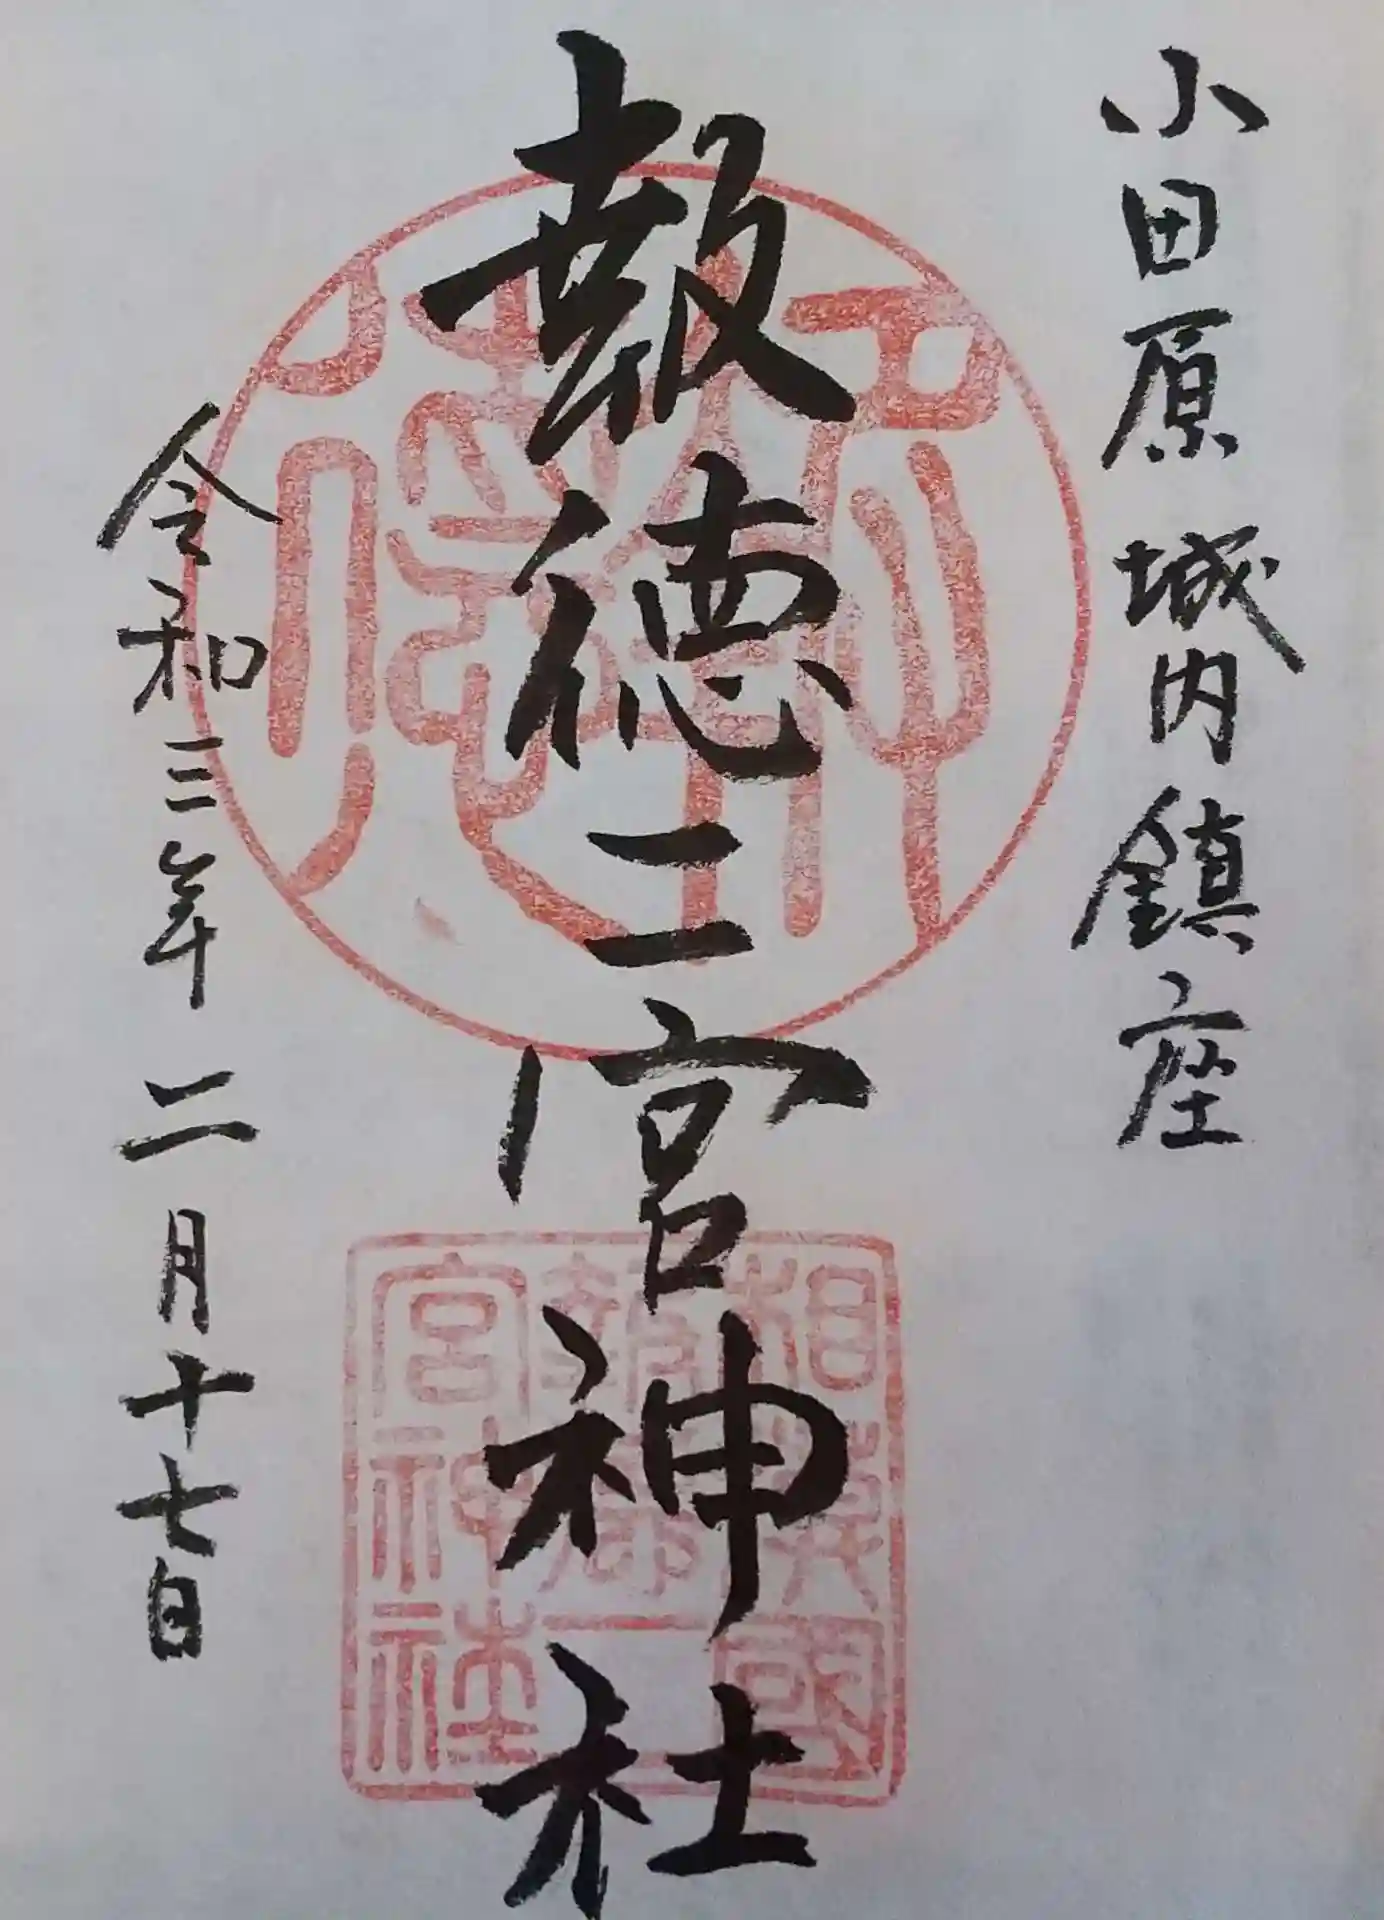 小田原城内鎮座
報徳二宮神社
令和三年二月十七日
報徳
相模國
報徳二
宮神社